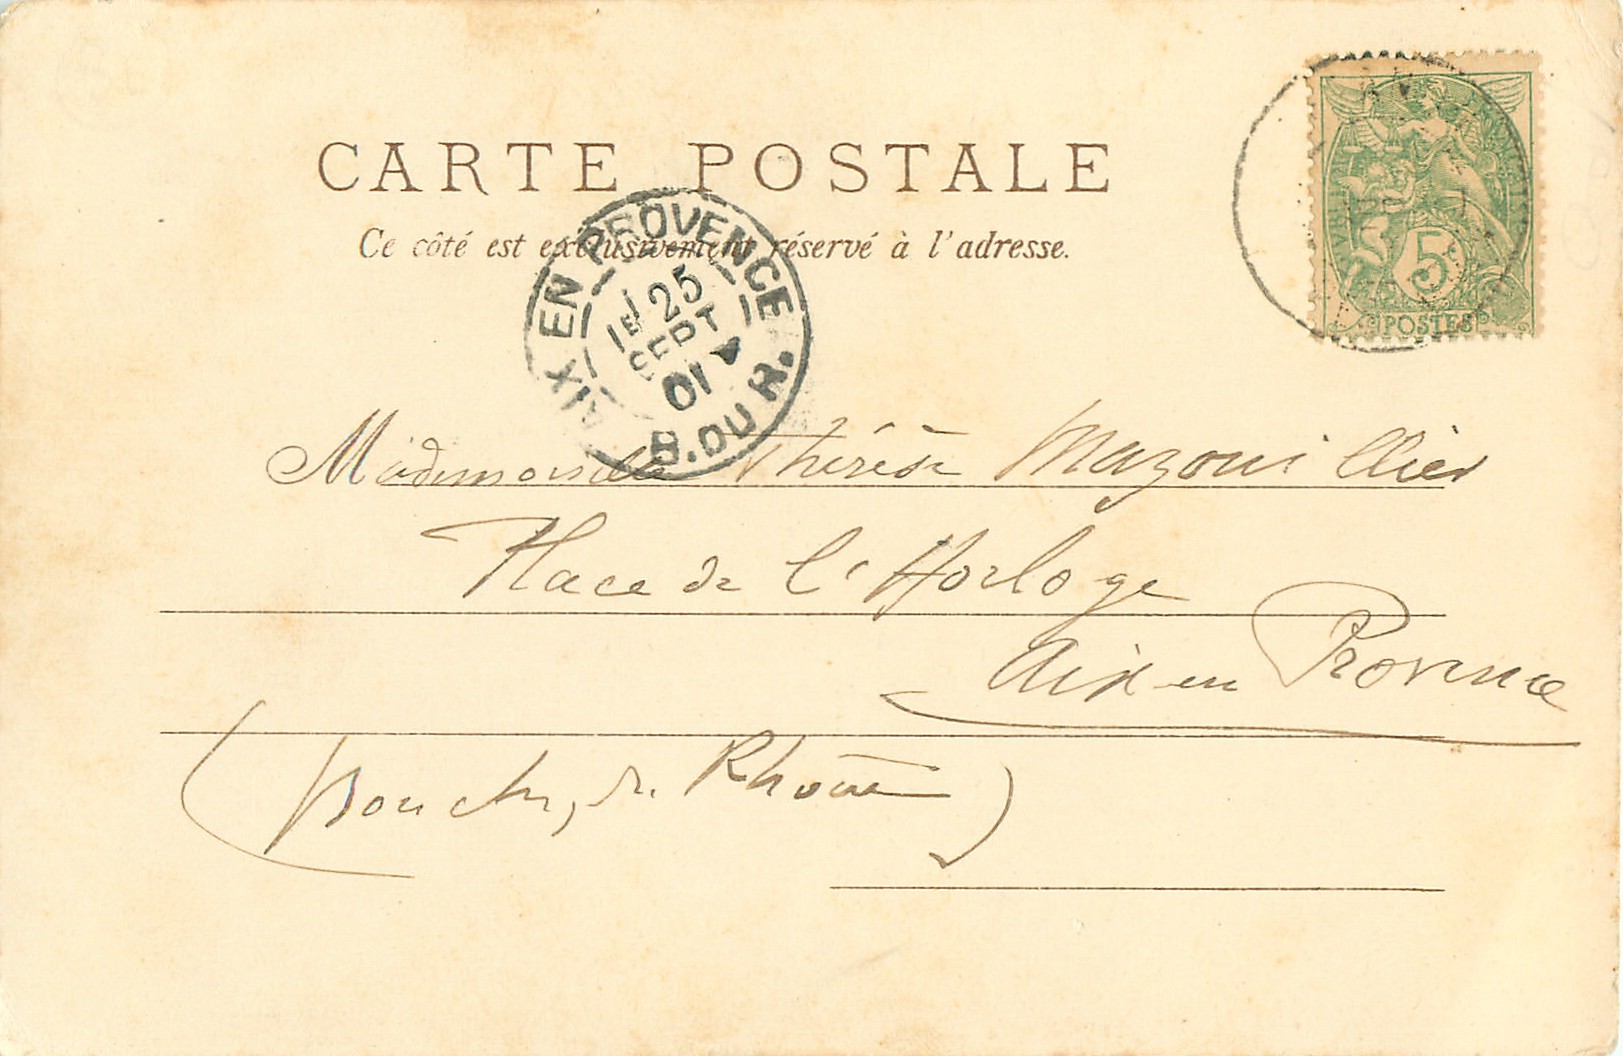 CARTE POSTALE
Ce côté est exclusivement réservé à l'adresse.
5
POSTES
AIX EN PROVENCE
1E 25
SEPT
01
B. DU R.
Mademoiselle Thérèse Mazouillier
Place de l'Horloge
Aix en Provence
(Bouches du Rhône)